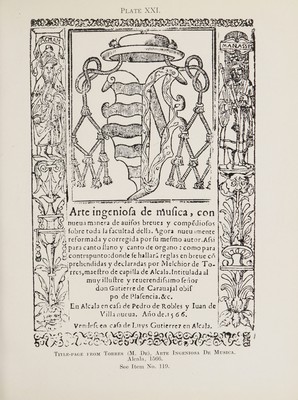 PLATE XXI.
MANASES
Arte ingeniosa de musica, con
nueua manera de auisos breues y compēdiosos
sobre toda la facultad della. Agora nueuamente
reformada y corregida por su mesmo autor. Assi
para canto llano y canto de organo: como para
contrapunto: donde se hallarā reglas en breue cō
prehendidas y declaradas por Melchior de To-
rres, maestro de capilla de Alcala. Intitulada al
muy illustre y reuerendissimo señor
don Gutierre de Carauajal obis
po de Plasencia. &c.
En Alcala en casa de Pedro de Robles y Juan de
Villanueua. Año de. 1566.
Vendese en casa de Luys Gutierrez en Alcala.
TITLE-PAGE FROM TORRES (M. DE), ARTE INGENIOSA DE MUSICA.
Alcala, 1566.
See Item No. 119.